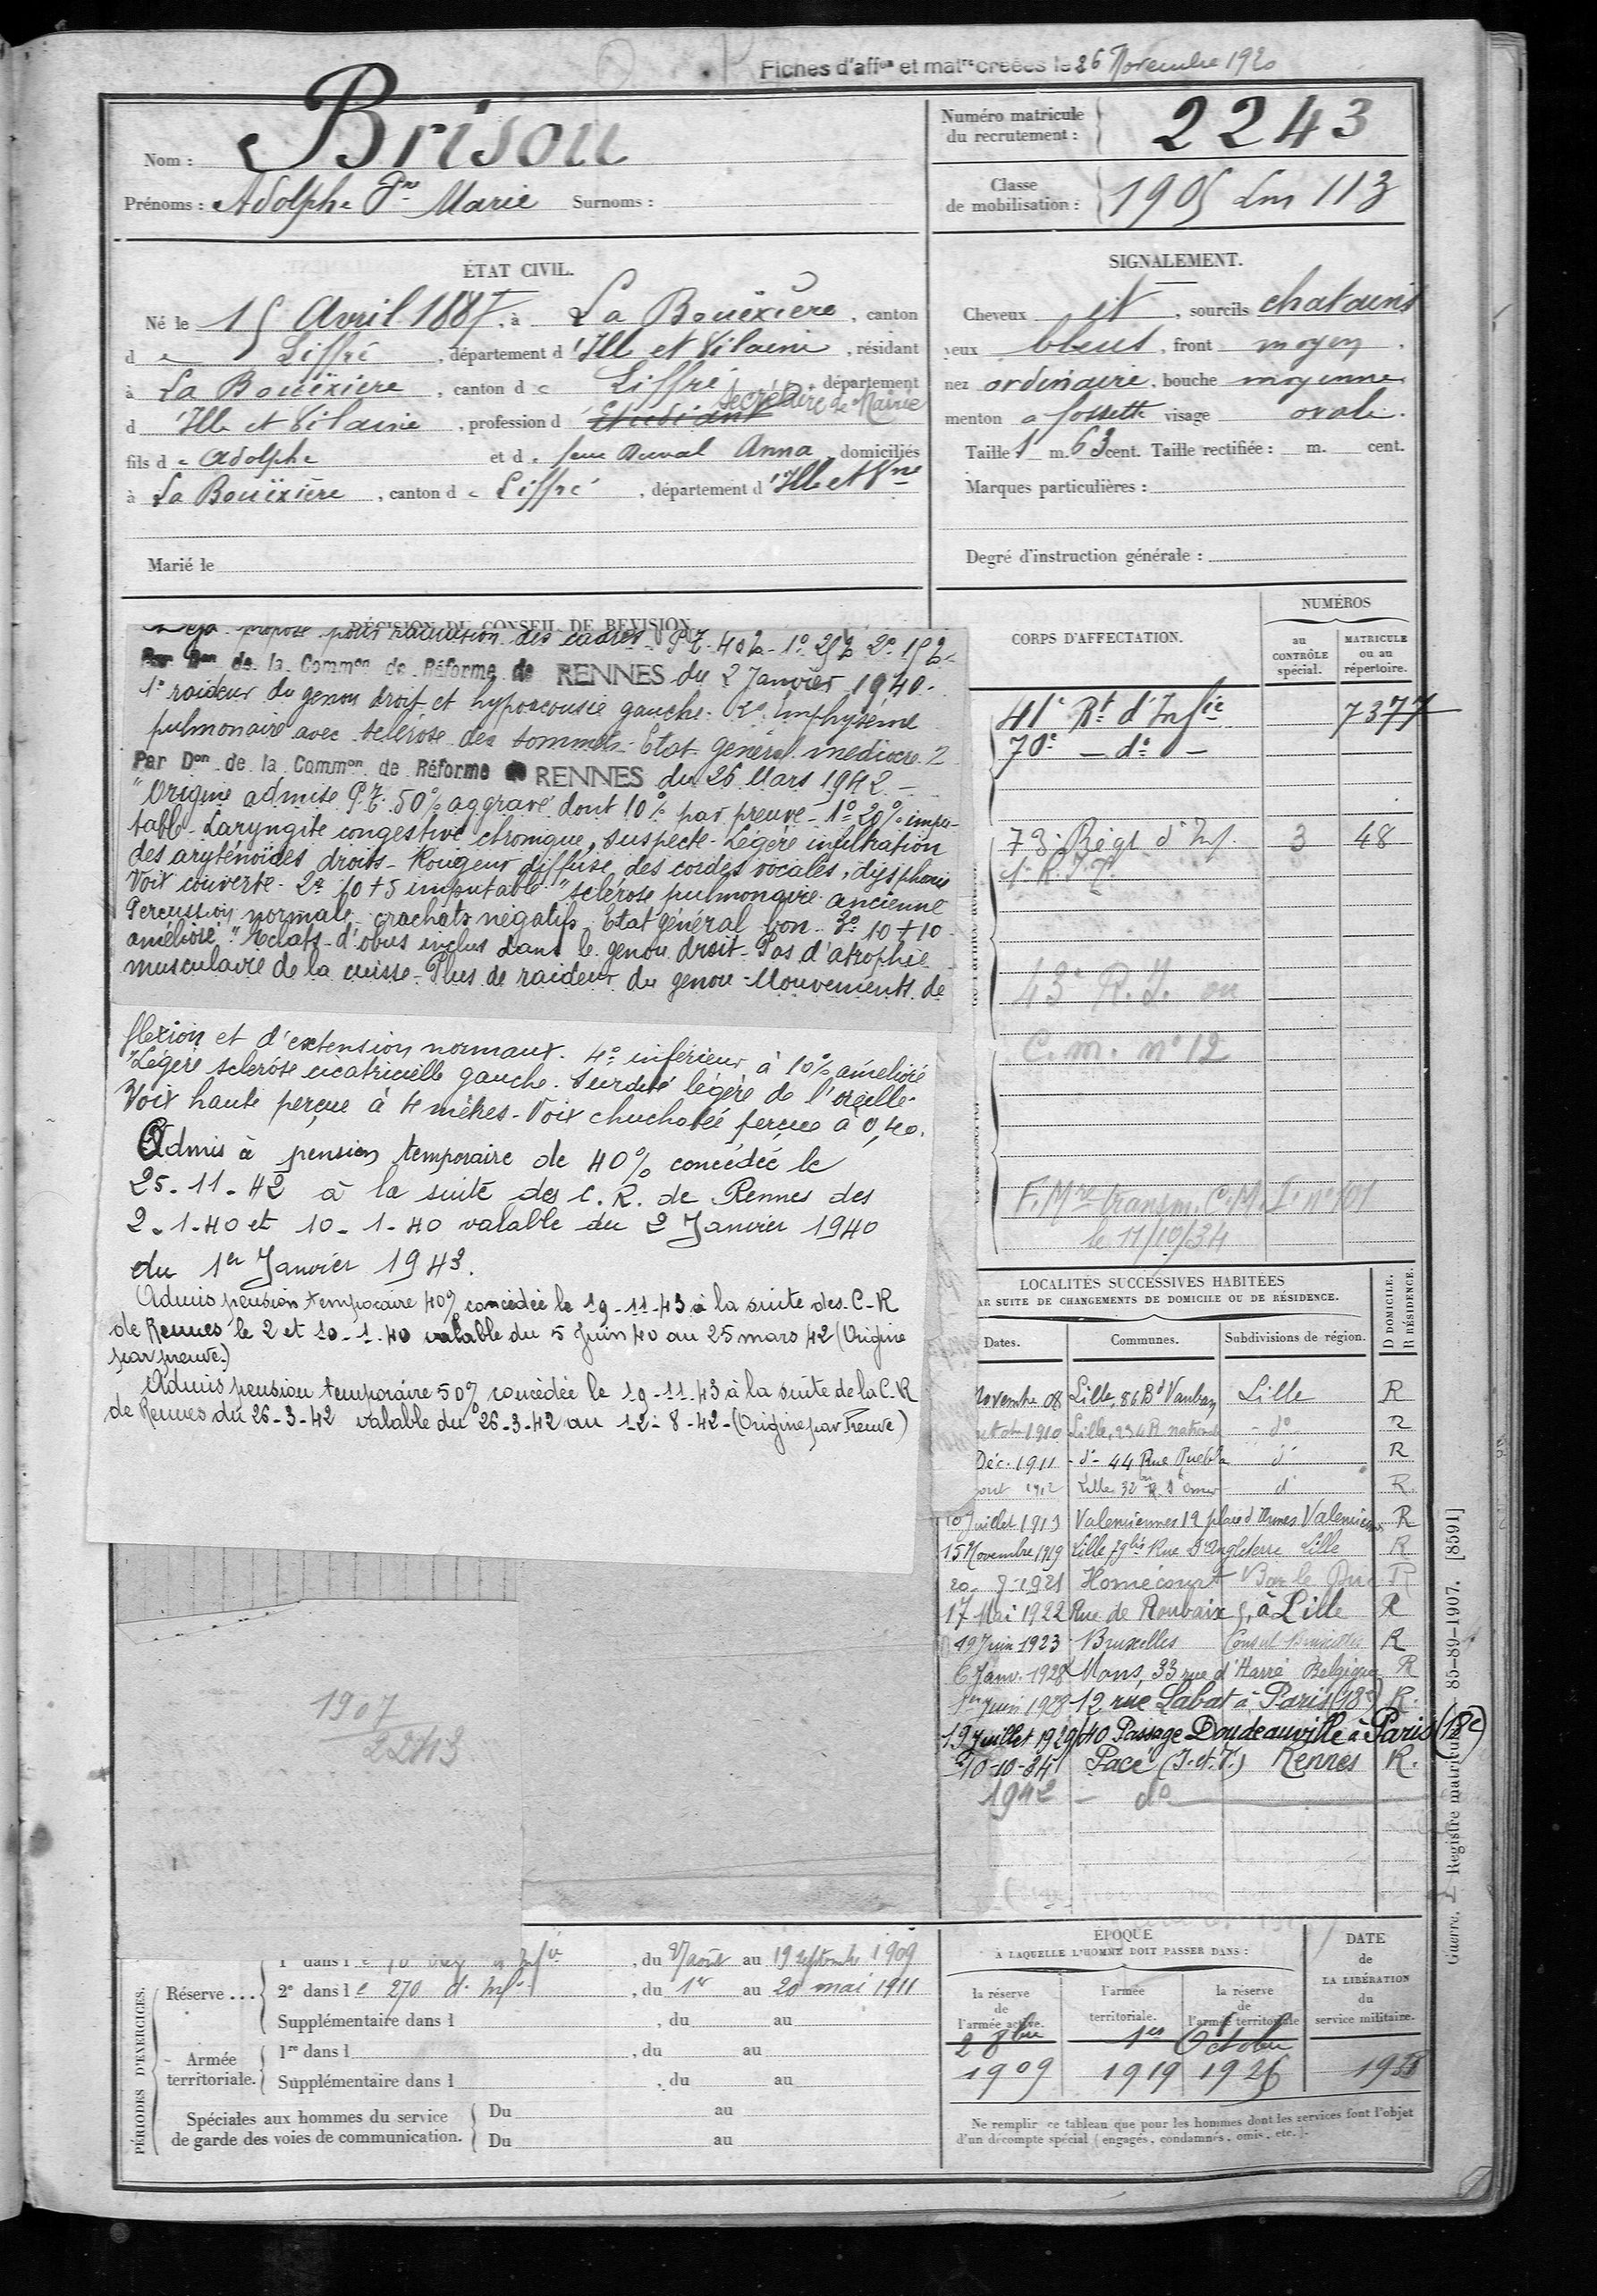 Fiches d'affon et matre créées le 26 Novembre 1920
Nom : Brisou
Prénoms : Adolphe Prre Marie Surnoms :
Numéro matricule du recrutement : 2243
Classe de mobilisation : 1905 Lm 113
ÉTAT CIVIL.
Né le 15 Avril 1887, à La Bouëxière, canton
de Liffré, département d'Ille et Vilaine, résidant
à La Bouëxiere, canton de Liffré, département
d'Ille et Vilaine, profession d Etudiant Secrétaire de Mairie
fils de Adolphe et de feue Duval Anna domiciliés
à La Bouëxière, canton de Liffré, département d'Ille et Vne
Marié le
SIGNALEMENT.
Cheveux et, sourcils chatains
yeux bleus, front moyen.
nez ordinaire, bouche moyenne
menton à fossette visage ovale.
Taille 1 m. 63 cent. Taille rectifiée : m. cent.
Marques particulières :
Degré d'instruction générale :
DÉCISION DU CONSEIL DE REVISION
Déjà proposé pour radiation des cadres P.T. 40% - 1° 25% 2° 15%
Par Don de la Common de Réforme de RENNES du 2 Janvier 1940.
1° raideur du genou droit et hypoacousie gauche. 2° Emphysème
pulmonaire avec sclérose des sommets. Etat général médiocre
Par Don de la Common de Réforme de RENNES du 26 Mars 1942
"Origine admise P.T. 50% aggravé dont 10% par preuve - 1° 20% impu-
table. Laryngite congestive chronique, suspecte. Légère infiltration
des aryténoïdes droits - Rougeur diffuse des cordes vocales, dysphonie
Voix couverte. 2° 10+5 imputable "sclérose pulmonaire ancienne
Percussion normale, crachats négatifs. Etat général bon. 3° 10+10
amélioré." Eclats d'obus inclus dans le genou droit. Pas d'atrophie
musculaire de la cuisse. Plus de raideur du genou - Mouvements de
flexion et d'extension normaux. 4° inférieur à 10% amélioré
"Légère sclérose cicatricielle gauche. Surdité légère de l'oreille.
Voix haute perçue à 4 mètres. Voix chuchotée perçue à 0,40.
Admis à pension temporaire de 40% concédée le
25-11-42 à la suite des C.R. de Rennes des
2-1-40 et 10-1-40 valable du 2 Janvier 1940
du 1er Janvier 1943.
Admis pension temporaire 40% concédée le 19-11-43 à la suite des C-R
de Rennes le 2 et 10-1-40 valable du 5 Juin 40 au 25 mars 42 (Origine
par preuve.)
Admis pension temporaire 50% concédée le 19-11-43 à la suite de la C.R
de Rennes du 26-3-42 valable du 26-3-42 au 12-8-42 - (Origine par Preuve)
1907
2243
CORPS D'AFFECTATION.
NUMÉROS
au CONTRÔLE spécial.
MATRICULE ou au répertoire.
41e Rt d'Infie 7377
70e - do -
73e Régt d'Inf. 3 48
43e R.I. ou
C.m. n° 12
F. Mre transm. C.M.I. n° 101
le 11/10/34
LOCALITÉS SUCCESSIVES HABITÉES
AR SUITE DE CHANGEMENTS DE DOMICILE OU DE RÉSIDENCE.
D DOMICILE.
R RÉSIDENCE.
Dates. Communes. Subdivisions de région.
Novembre 08 Lille, 86 Bd Vauban Lille R
1910 Lille, 234 R. nationale do R
Déc. 1911 - d° - 44 Rue Puebla d° R
1912 Lille 32 R. St Omer d° R.
10 Juillet 1913 Valenciennes 12 place d'Armes Valenciennes R
15 Novembre 1919 Lille 79bis Rue d'Angleterre Lille R
20-7-1921 Homécourt Bar le Duc R
17 Mai 1922 Rue de Roubaix 5, à Lille R
19 Juin 1923 Bruxelles Consul Bruxelles R
6 Janv. 1928 Mons, 33 rue d'Havré Belgique R
1er Juin 1928 12 rue Labat à Paris (18e) R.
19 Juillet 1929 40 Passage Doudeauville à Paris (18e)
10-10-34 Pacé (I.et.V.) Rennes R.
1942 - do
PÉRIODES D'EXERCICES.
Réserve ...
1re dans le , du août au 19 septembre 1909
2e dans le 270 d'Infie, du 1er au 20 mai 1911
Supplémentaire dans l , du au
Armée territoriale.
1re dans l , du au
Supplémentaire dans l , du au
Spéciales aux hommes du service de garde des voies de communication.
Du au
Du au
ÉPOQUE
À LAQUELLE L'HOMME DOIT PASSER DANS :
la réserve de l'armée active.
l'armée territoriale.
la réserve de l'armée territoriale
DATE de LA LIBÉRATION du service militaire.
1er Octobre
1909 1919 1926
Ne remplir ce tableau que pour les hommes dont les services font l'objet
d'un décompte spécial (engagés, condamnés, omis, etc.).
Guerre. Registre matricule 85-89-1907. [8591]